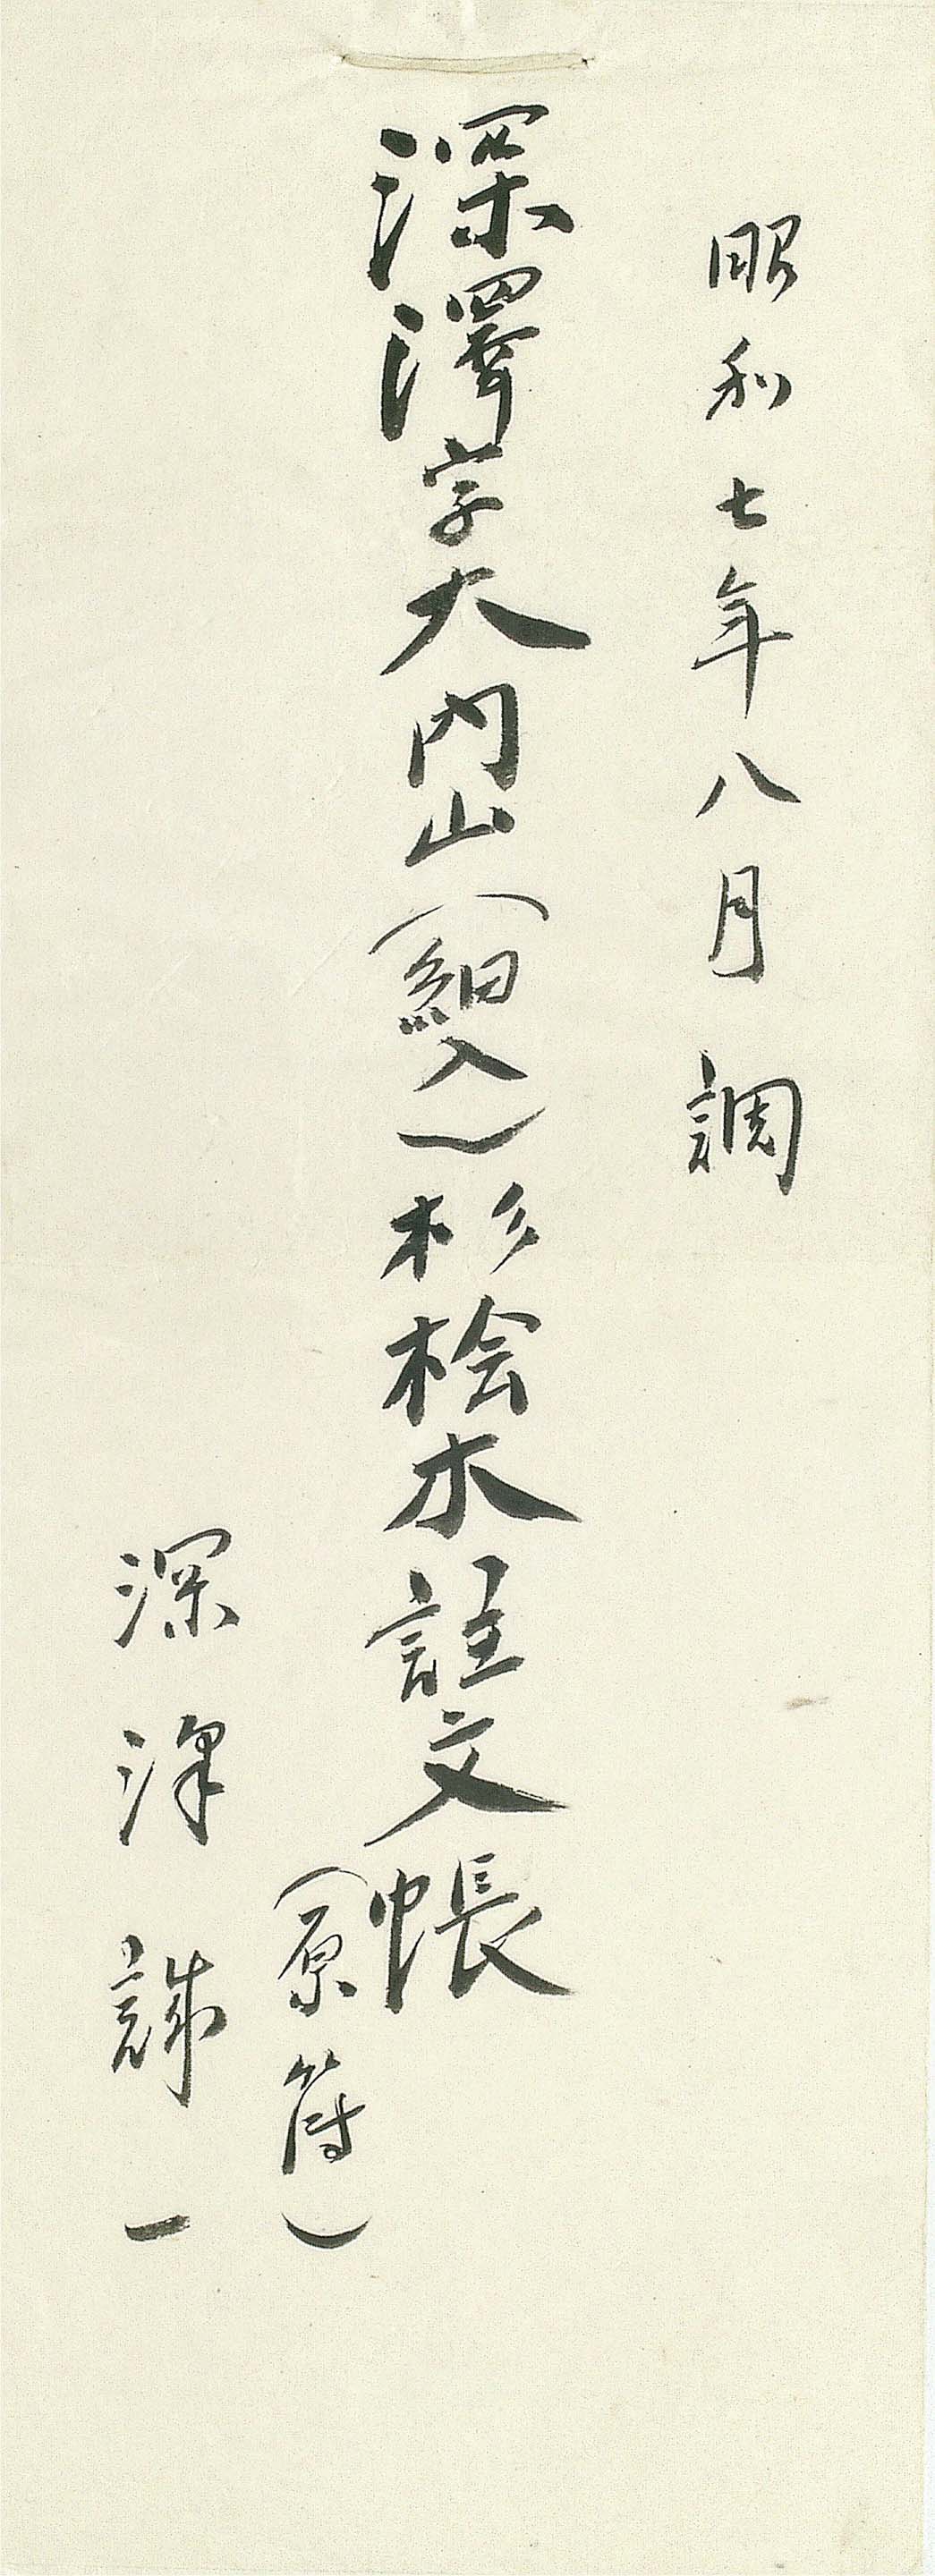 昭和七年八月調
深澤字大門山(細入)杉桧木註文帳
(原簿)
深澤誠一